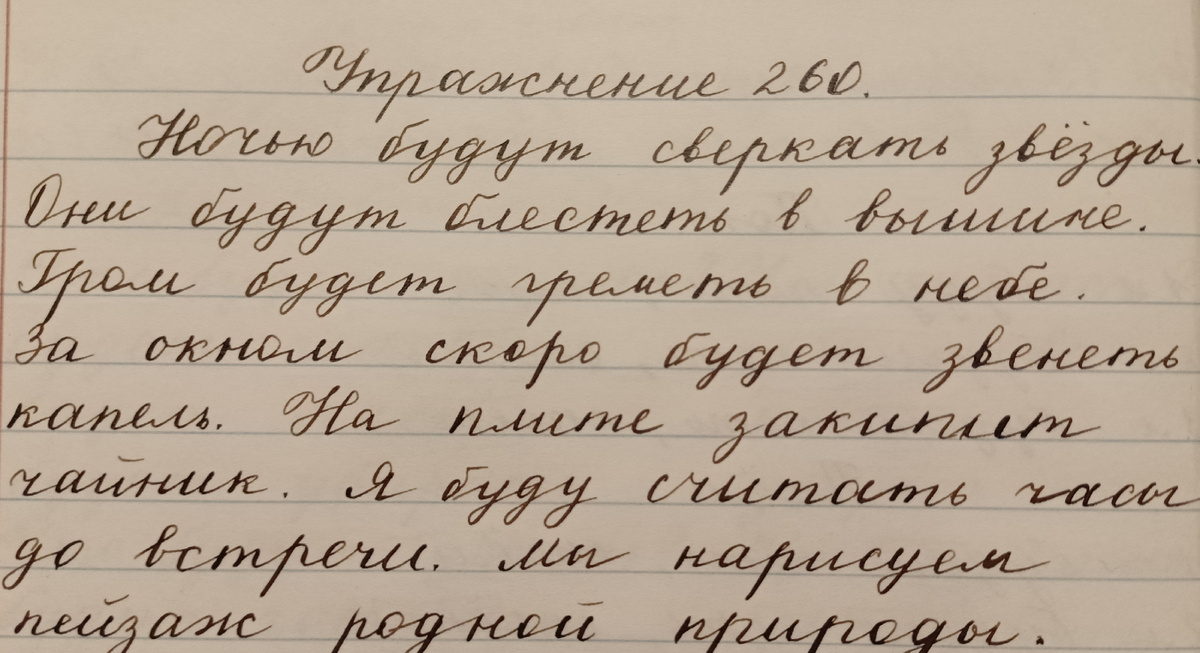 Упражнение 260.
Ночью будут сверкать звёзды.
Они будут блестеть в вышине.
Гром будет греметь в небе.
За окном скоро будет звенеть
капель. На плите закипит
чайник. Я буду считать часы
до встречи. Мы нарисуем
пейзаж родной природы.